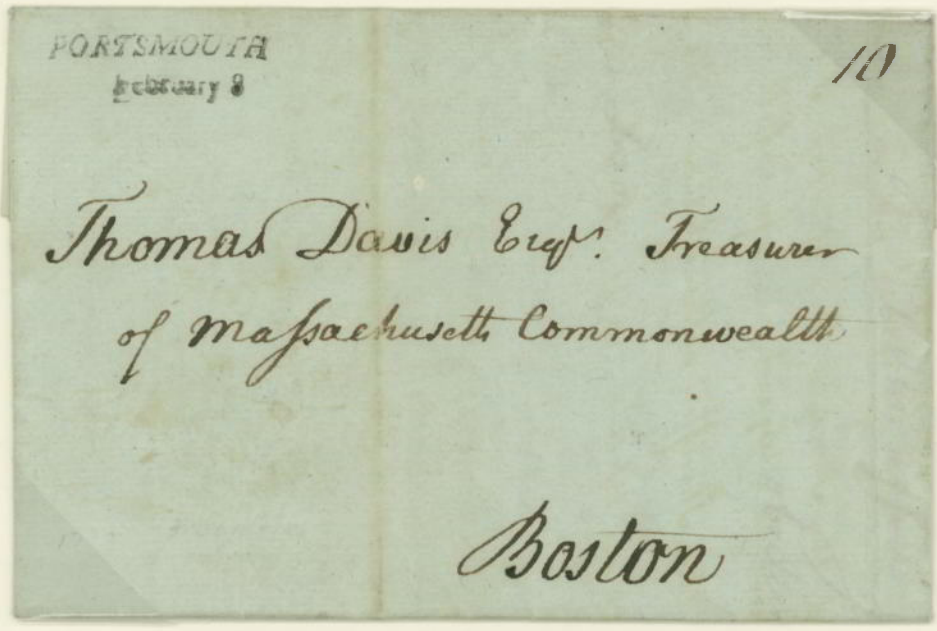 PORTSMOUTH
10
February 8
Thomas Davis Esqr. Treasurer
of Massachusetts Commonwealth
Boston